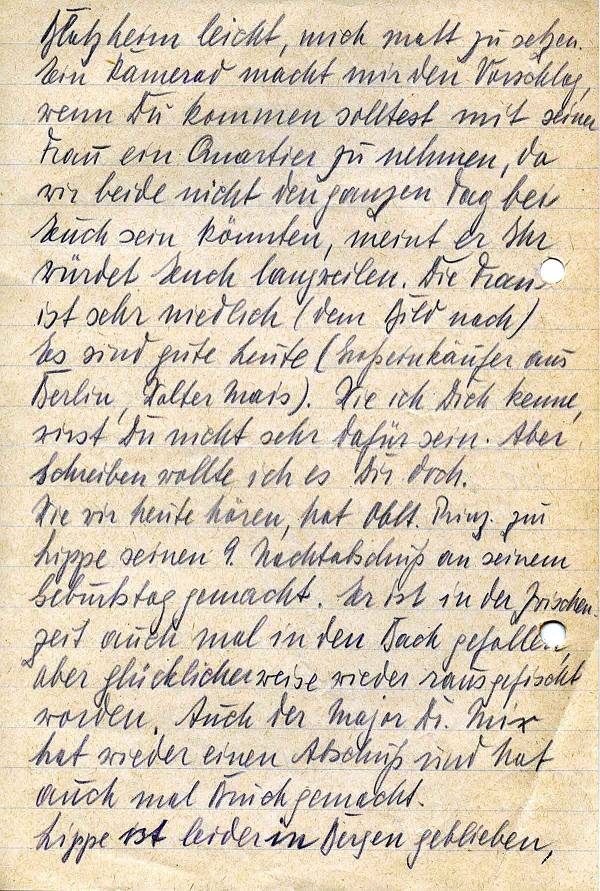 Blatzheim leicht, mich matt zu setzen.
Ein Kamerad macht mir den Vorschlag,
wenn Du kommen solltest mit seiner
Frau ein Quartier zu nehmen, da
wir beide nicht den ganzen Tag bei
Euch sein könnten, meint er Ihr
würdet Euch langweilen. Die Frau
ist sehr niedlich (dem Bild nach)
Es sind gute Leute (Großeinkäufer aus
Berlin, Walter Mais). Wie ich Dich kenne,
wirst Du nicht sehr dafür sein. Aber
schreiben wollte ich es Dir doch.
Wie wir heute hören, hat Oblt. Prinz zur
Lippe seinen 9. Nachtabschuß an seinem
Geburtstag gemacht. Er ist in der Zwischen-
zeit auch mal in den Bach gefallen,
aber glücklicherweise wieder rausgefischt
worden. Auch der Major Dr. Mix
hat wieder einen Abschuß und hat
auch mal Bruch gemacht.
Lippe ist leider in Bergen geblieben,